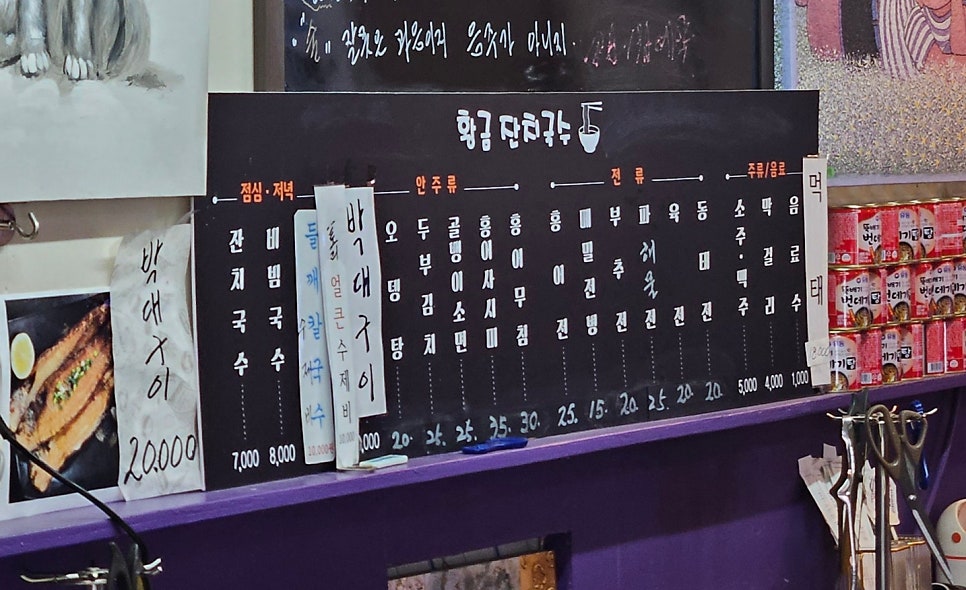 "술" 잘못은 과음이지 음주가 아니지.
황금 잔치국수
점심·저녁
안주류
전류
주류/음료
잔치국수 7,000
비빔국수 8,000
들깨 칼국수 10,000원
얼큰수제비 10,000
박대구이
오뎅탕 20.
두부김치 25.
골뱅이소면 25.
홍어사시미 35.
홍어무침 30.
홍어전 25.
메밀전병 15.
부추전 20.
해물파전 25.
육전 20.
동태전 20.
소주·맥주 5,000
막걸리 4,000
음료수 1,000
먹태
박대구이
20,000
뚝배기
번데기탕